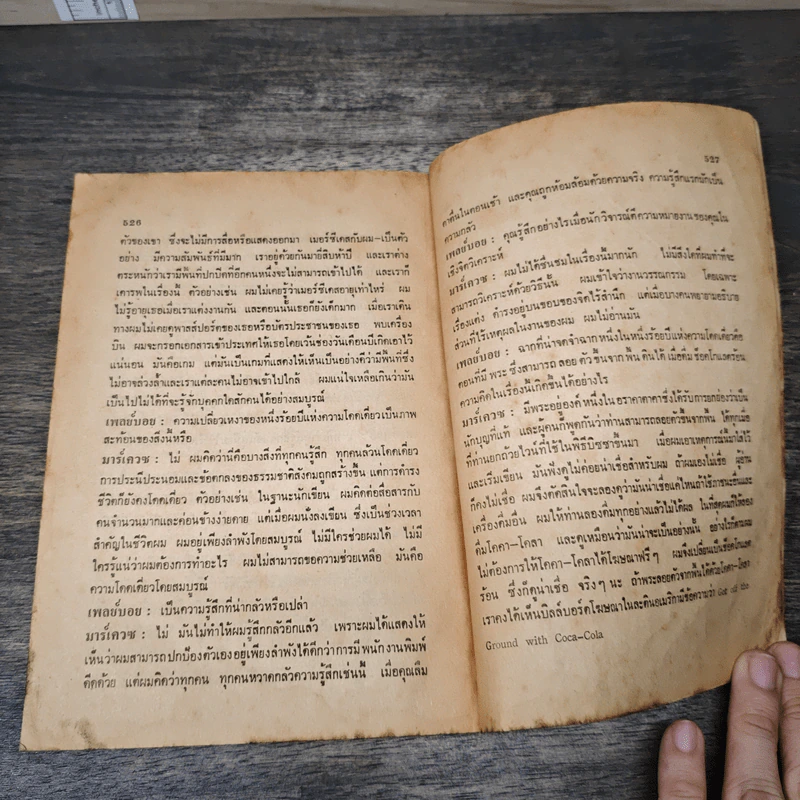 526
ตัวของเขา ซึ่งจะไม่มีการสื่อหรือแสดงออกมา เมอร์ซีเดสกับผม—เป็นตัว
อย่าง มีความสัมพันธ์ที่ดีมาก เราอยู่ด้วยกันมายี่สิบห้าปี และเราต่าง
ตระหนักว่าเรามีพื้นที่ปกปิดที่อีกคนหนึ่งจะไม่สามารถเข้าไปได้ และเราก็
เคารพในเรื่องนี้ ตัวอย่างเช่น ผมไม่เคยรู้ว่าเมอร์ซีเดสอายุเท่าไหร่ ผม
ไม่รู้อายุเธอเมื่อเราแต่งงานกัน และตอนนั้นเธอก็ยังเด็กมาก เมื่อเราเดิน
ทางผมไม่เคยดูพาสส์ปอร์ตของเธอหรือบัตรประชาชนของเธอ พบเครื่อง
บิน ผมจะกรอกเอกสารเข้าประเทศให้เธอโดยเว้นช่องวันเดือนปีเกิดเอาไว้
แน่นอน มันคือเกม แต่มันเป็นเกมที่แสดงให้เห็นเป็นอย่างดีว่ามีพื้นที่ซึ่ง
ไม่อาจล่วงล้ำและเราแต่ละคนไม่อาจเข้าไปใกล้ ผมแน่ใจเหลือเกินว่ามัน
เป็นไปไม่ได้ที่จะรู้จักบุคคลใดสักคนได้อย่างสมบูรณ์
เพลย์บอย : ความเปลี่ยวเหงาของหนึ่งร้อยปีแห่งความโดดเดี่ยวเป็นภาพ
สะท้อนของสิ่งนี้หรือ
มาร์เควซ : ไม่ ผมคิดว่านี่คือบางสิ่งที่ทุกคนรู้สึก ทุกคนล้วนโดดเดี่ยว
การประนีประนอมและข้อตกลงของธรรมชาติสังคมถูกสร้างขึ้น แต่การดำรง
ชีวิตก็ยังคงโดดเดี่ยว ตัวอย่างเช่น ในฐานะนักเขียน ผมติดต่อสื่อสารกับ
คนจำนวนมากและค่อนข้างง่ายดาย แต่เมื่อผมนั่งลงเขียน ซึ่งเป็นช่วงเวลา
สำคัญในชีวิตผม ผมอยู่เพียงลำพังโดยสมบูรณ์ ไม่มีใครช่วยผมได้ ไม่มี
ใครรู้แน่ว่าผมต้องการทำอะไร ผมไม่สามารถขอความช่วยเหลือ มันคือ
ความโดดเดี่ยวโดยสมบูรณ์
เพลย์บอย : เป็นความรู้สึกที่น่ากลัวหรือเปล่า
มาร์เควซ : ไม่ มันไม่ทำให้ผมรู้สึกกลัวอีกแล้ว เพราะผมได้แสดงให้
เห็นว่าผมสามารถปกป้องตัวเองอยู่เพียงลำพังได้ดีกว่าการมีพนักงานพิมพ์
ดีดด้วย แต่ผมคิดว่าทุกคน ทุกคนหวาดกลัวความรู้สึกเช่นนี้ เมื่อคุณลืม
527
ตาตื่นในตอนเช้า และคุณถูกห้อมล้อมด้วยความจริง ความรู้สึกแรกมักเป็น
ความกลัว
เพลย์บอย : คุณรู้สึกอย่างไรเมื่อนักวิจารณ์ตีความหมายงานของคุณใน
เชิงจิตวิเคราะห์
มาร์เควซ : ผมไม่ได้ชื่นชมในเรื่องนี้มากนัก ไม่มีสิ่งใดที่ผมทำที่จะ
สามารถวิเคราะห์ด้วยวิธีนั้น ผมเข้าใจว่างานวรรณกรรม โดยเฉพาะ
เรื่องแต่ง ดำรงอยู่บนขอบของจิตไร้สำนึก แต่เมื่อบางคนพยายามอธิบาย
ส่วนที่ไร้เหตุผลในงานของผม ผมไม่อ่านมัน
เพลย์บอย : ฉากที่น่าจดจำฉากหนึ่งในหนึ่งร้อยปีแห่งความโดดเดี่ยวคือ
ตอนที่มีพระซึ่งสามารถลอยตัวขึ้นจากพื้นดินได้เมื่อดื่มช็อคโกแลตร้อน
ความคิดในเรื่องนี้เกิดขึ้นได้อย่างไร
มาร์เควซ : มีพระอยู่องค์หนึ่งในอราคาตาคาซึ่งได้รับการยกย่องว่าเป็น
นักบุญที่แท้ และผู้คนก็พูดกันว่าท่านสามารถลอยตัวขึ้นจากพื้นได้ทุกเมื่อ
ที่ท่านยกถ้วยไวน์ที่ใช้ในพิธีบิซซาขึ้นมา เมื่อผมเอาเหตุการณ์นี้มาใส่ไว้
และเริ่มเขียน มันฟังดูไม่ค่อยน่าเชื่อสำหรับผม ถ้าผมเองไม่เชื่อ ผู้อ่าน
ก็คงไม่เชื่อ ผมจึงตัดสินใจจะลองดูว่ามันน่าเชื่อแค่ไหนถ้าใช้ภาชนะอื่นและ
เครื่องดื่มอื่น ผมให้ท่านลองดื่มทุกอย่างแล้วไม่ได้ผล ในที่สุดผมก็ให้ลอง
ดื่มโคคา—โคลา และดูเหมือนว่ามันน่าจะเป็นอย่างนั้น อย่างไรก็ตามผม
ไม่ต้องการให้โคคา—โคลาได้โฆษณาฟรีๆ ผมจึงเปลี่ยนเป็นช็อคโกแลต
ร้อน ซึ่งก็ดูน่าเชื่อ จริงๆ นะ ถ้าพระลอยตัวจากพื้นได้ด้วยโคคา—โคลา
เราคงได้เห็นบิลล์บอร์ดโฆษณาในละตินอเมริกามีข้อความว่า Get off the
Ground with Coca—Cola